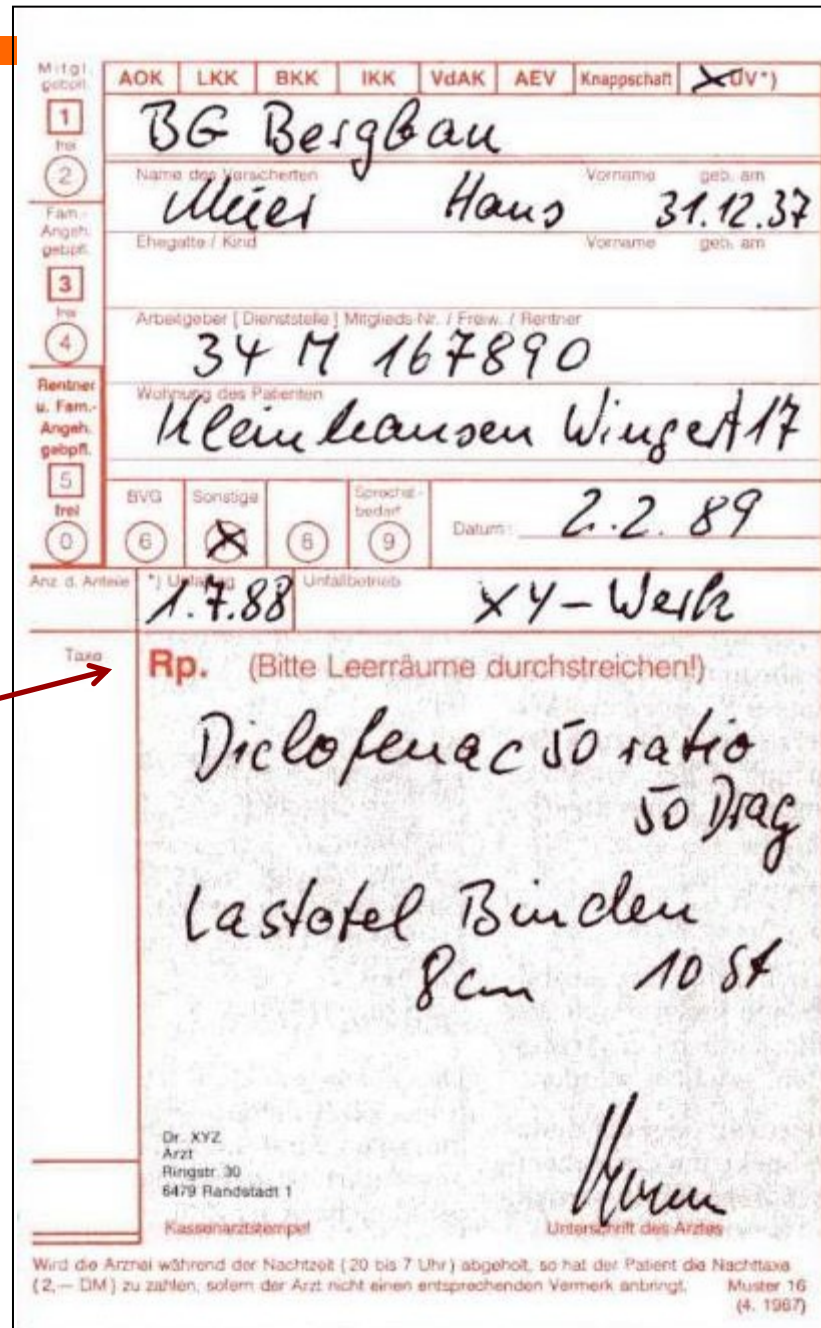 Mitgl. gebpfl.
AOK LKK BKK IKK VdAK AEV Knappschaft UV*)
1
frei
2
BG Bergbau
Name des Versicherten Vorname geb. am
Meier Hans 31.12.37
Fam.-
Angeh.
gebpfl.
Ehegatte / Kind Vorname geb. am
3
frei
4
Arbeitgeber (Dienststelle) Mitglieds-Nr. / Freiw. / Rentner
34 M 167890
Rentner
u. Fam.-
Angeh.
gebpfl.
Wohnung des Patienten
Kleinhausen Wingert 17
5
frei
0
BVG Sonstige Sprechst.-
bedarf
6 X 8 9
Datum: 2.2.89
Anz. d. Anteile *) Unfalltag Unfallbetrieb
1.7.88 XY-Werk
Taxe
Rp. (Bitte Leerräume durchstreichen!)
Diclofenac 50 ratio
50 Drag
Lastotel Binden
8cm 10 St
Dr. XYZ
Arzt
Ringstr. 30
6479 Randstadt 1
Kassenarztstempel Unterschrift des Arztes
Wird die Arznei während der Nachtzeit (20 bis 7 Uhr) abgeholt, so hat der Patient die Nachttaxe
(2,— DM) zu zahlen, sofern der Arzt nicht einen entsprechenden Vermerk anbringt. Muster 16
(4. 1987)